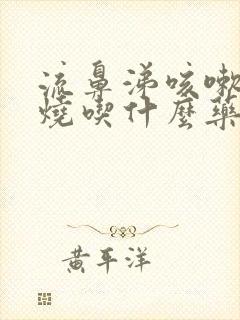 流鼻涕咳嗽
燒喫什麼藥
黄平洋